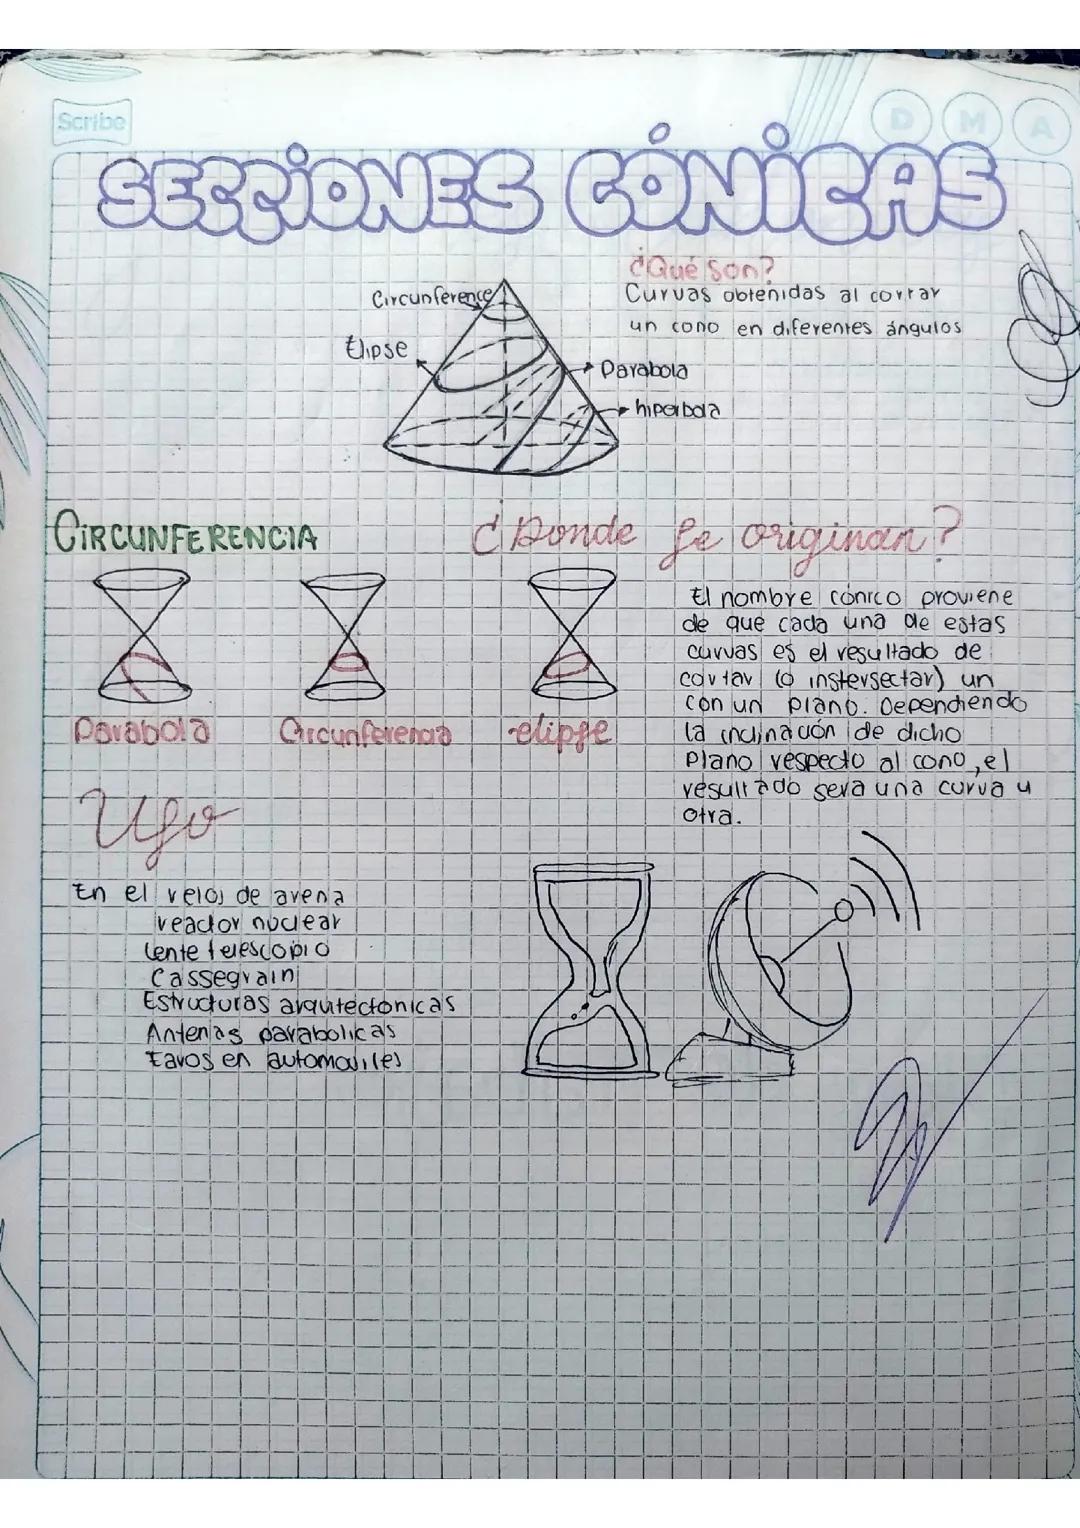 Scribe
D M A
SECCiONES CÓNiCAS
¿Qué son?
Curvas obtenidas al cortar
un cono en diferentes ángulos
Circunference
Elipse
Parabola
hiperbola
CiRCUNFERENCIA
¿Donde se originan?
El nombre cónico proviene
de que cada una de estas
curvas es el resultado de
cortar (o instersectar) un
con un plano. Dependiendo
la inclinación de dicho
Plano respecto al cono, el
resultado sera una curva u
otra.
Parabola
Circunferencia
elipse
Uso
En el reloj de arena
reactor nuclear
Lente telescopio
Cassegrain
Estructuras arquitectonicas
Antenas parabolicas
Faros en automoviles